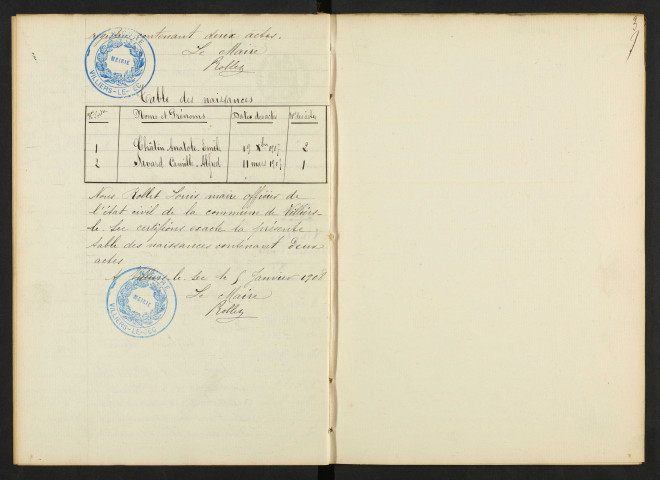 contenant deux actes.
Le Maire
Rollez
MAIRIE
VILLIERS-LE-SEC
Table des naissances
Noms et Prénoms Dates des actes N° des actes
1 Châtin Anatole Emile 19 Xbre 1907 2
2 Arvard Camille Alfred 11 mars 1907 1
Nous Rollet Louis maire officier de
l'état civil de la commune de Villiers-
le-Sec certifions exacte la présente
table des naissances contenant deux
actes
Villiers-le-Sec le 5 Janvier 1908
Le Maire
Rollez
MAIRIE
VILLIERS-LE-SEC